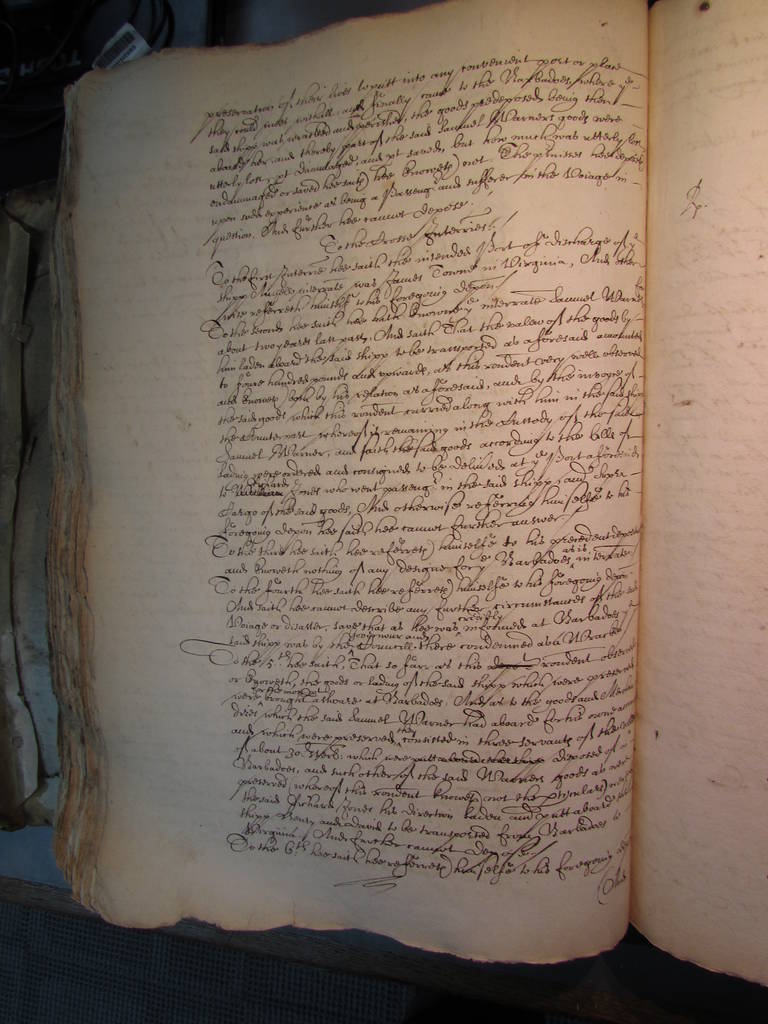 preservation of their lives to putt into any convenient port or place
they could meet withall, and finally came to the Barbadoes, where ye
said shipp was wracked and perished, the goods predeposed being then
aboard her, and thereby part of the said Samuel Warners goods were
utterly lost, pt damnaged, and pt saved, but how much was utterly lost
endamnaged or saved hee saith hee knoweth not. The premisses hee deposeth
upon such experience as being a Passengr and sufferer in the Voiage in
question. And further hee cannot depose.
To the Crosse Interries.
To the first Interrie hee saith the intended Port of discharge of ye
shipp interrate was James Towne in Virginia, And other
wise referreth himselfe to his foregoing deposn
To the second hee saith hee hath knowne ye interrate Samuel Warner for
about two yeares last past, And saith That the valew of the goods by
him laden aboard the said shipp to be transported as aforesaid amounted
to foure hundred pounds and upwards, as this rendent very well observed
and knoweth both by his relation as aforesaid, and by the invoyce of
the said goods which this rendent carried along with him in the said shipp
the Counterpart whereof is remaining in the Custody of the said
Samuel Warner, and saith the said goods according to the bills of
lading were ordered and consigned to be delivered at ye Port aforesaid
to Richard Jones who went passengr in the said shipp and Super
Cargo of the said goods, And otherwise referring himselfe to his
foregoing deposn hee saith hee cannot further answer.
To the third hee saith hee referreth himselfe to his precedent deposn
and knoweth nothing of any designe for ye Barbadoes as is interrate
To the fourth hee saith hee referreth himselfe to his foregoing deposn
And saith hee cannot describe any further circumstances of the said
Voiage or disaster, save that as hee was credibly informed at Barbados ye
said shipp was by the Governour and Councill there condemned as a Wracke
To the 5th hee saith, That so farr as this rendent observed
or knoweth, the goods or lading of the said shipp which were preserved
were for the most pt brought ashoare at Barbados. And as to the goods and Merchan
dizes which the said Samuel Warner had aboard for his owne accompt
and which were preserved, they consisted in three servants of the
of about 30 li sterl: which were disposed of at
Barbadoes, and such other of the said Warners goods as were
preserved (whereof this rendent knoweth not the pticulars) were by
the said Richard Jones his direction laden and putt aboard the
shipp Henry and David to be transported from Barbadoes to
Virginia, And further cannot depose.
To the 6th hee saith hee referreth himselfe to his foregoing deposn
(And